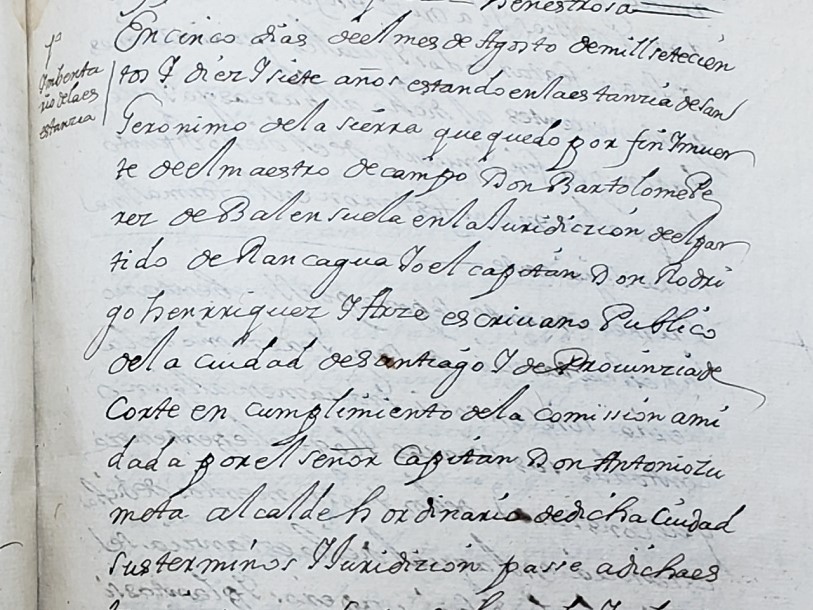 Henestrosa
En cinco dias deel mes de Agosto de mill setecien
tos Y diez Y siete años estando en la estanzia de san
Geronimo de la sierra que quedo por fin Y muer
te deel maestro de campo Don Bartolome Pe
rez de Balensuela en la Juridiczion deel par
tido de Rancagua Yo el capitan Don Rodri
go henrriquez Y Arze escrivano Publico
de la ciudad de santiago Y de Provinzia de
Corte en cumplimiento de la comission a mi
dada por el señor Capitan Don Antonio zu
meta alcalde hordinario de dicha Ciudad
sus terminos Y Juridizion passe a dicha es
Ymbenta
rio de la es
estanzia